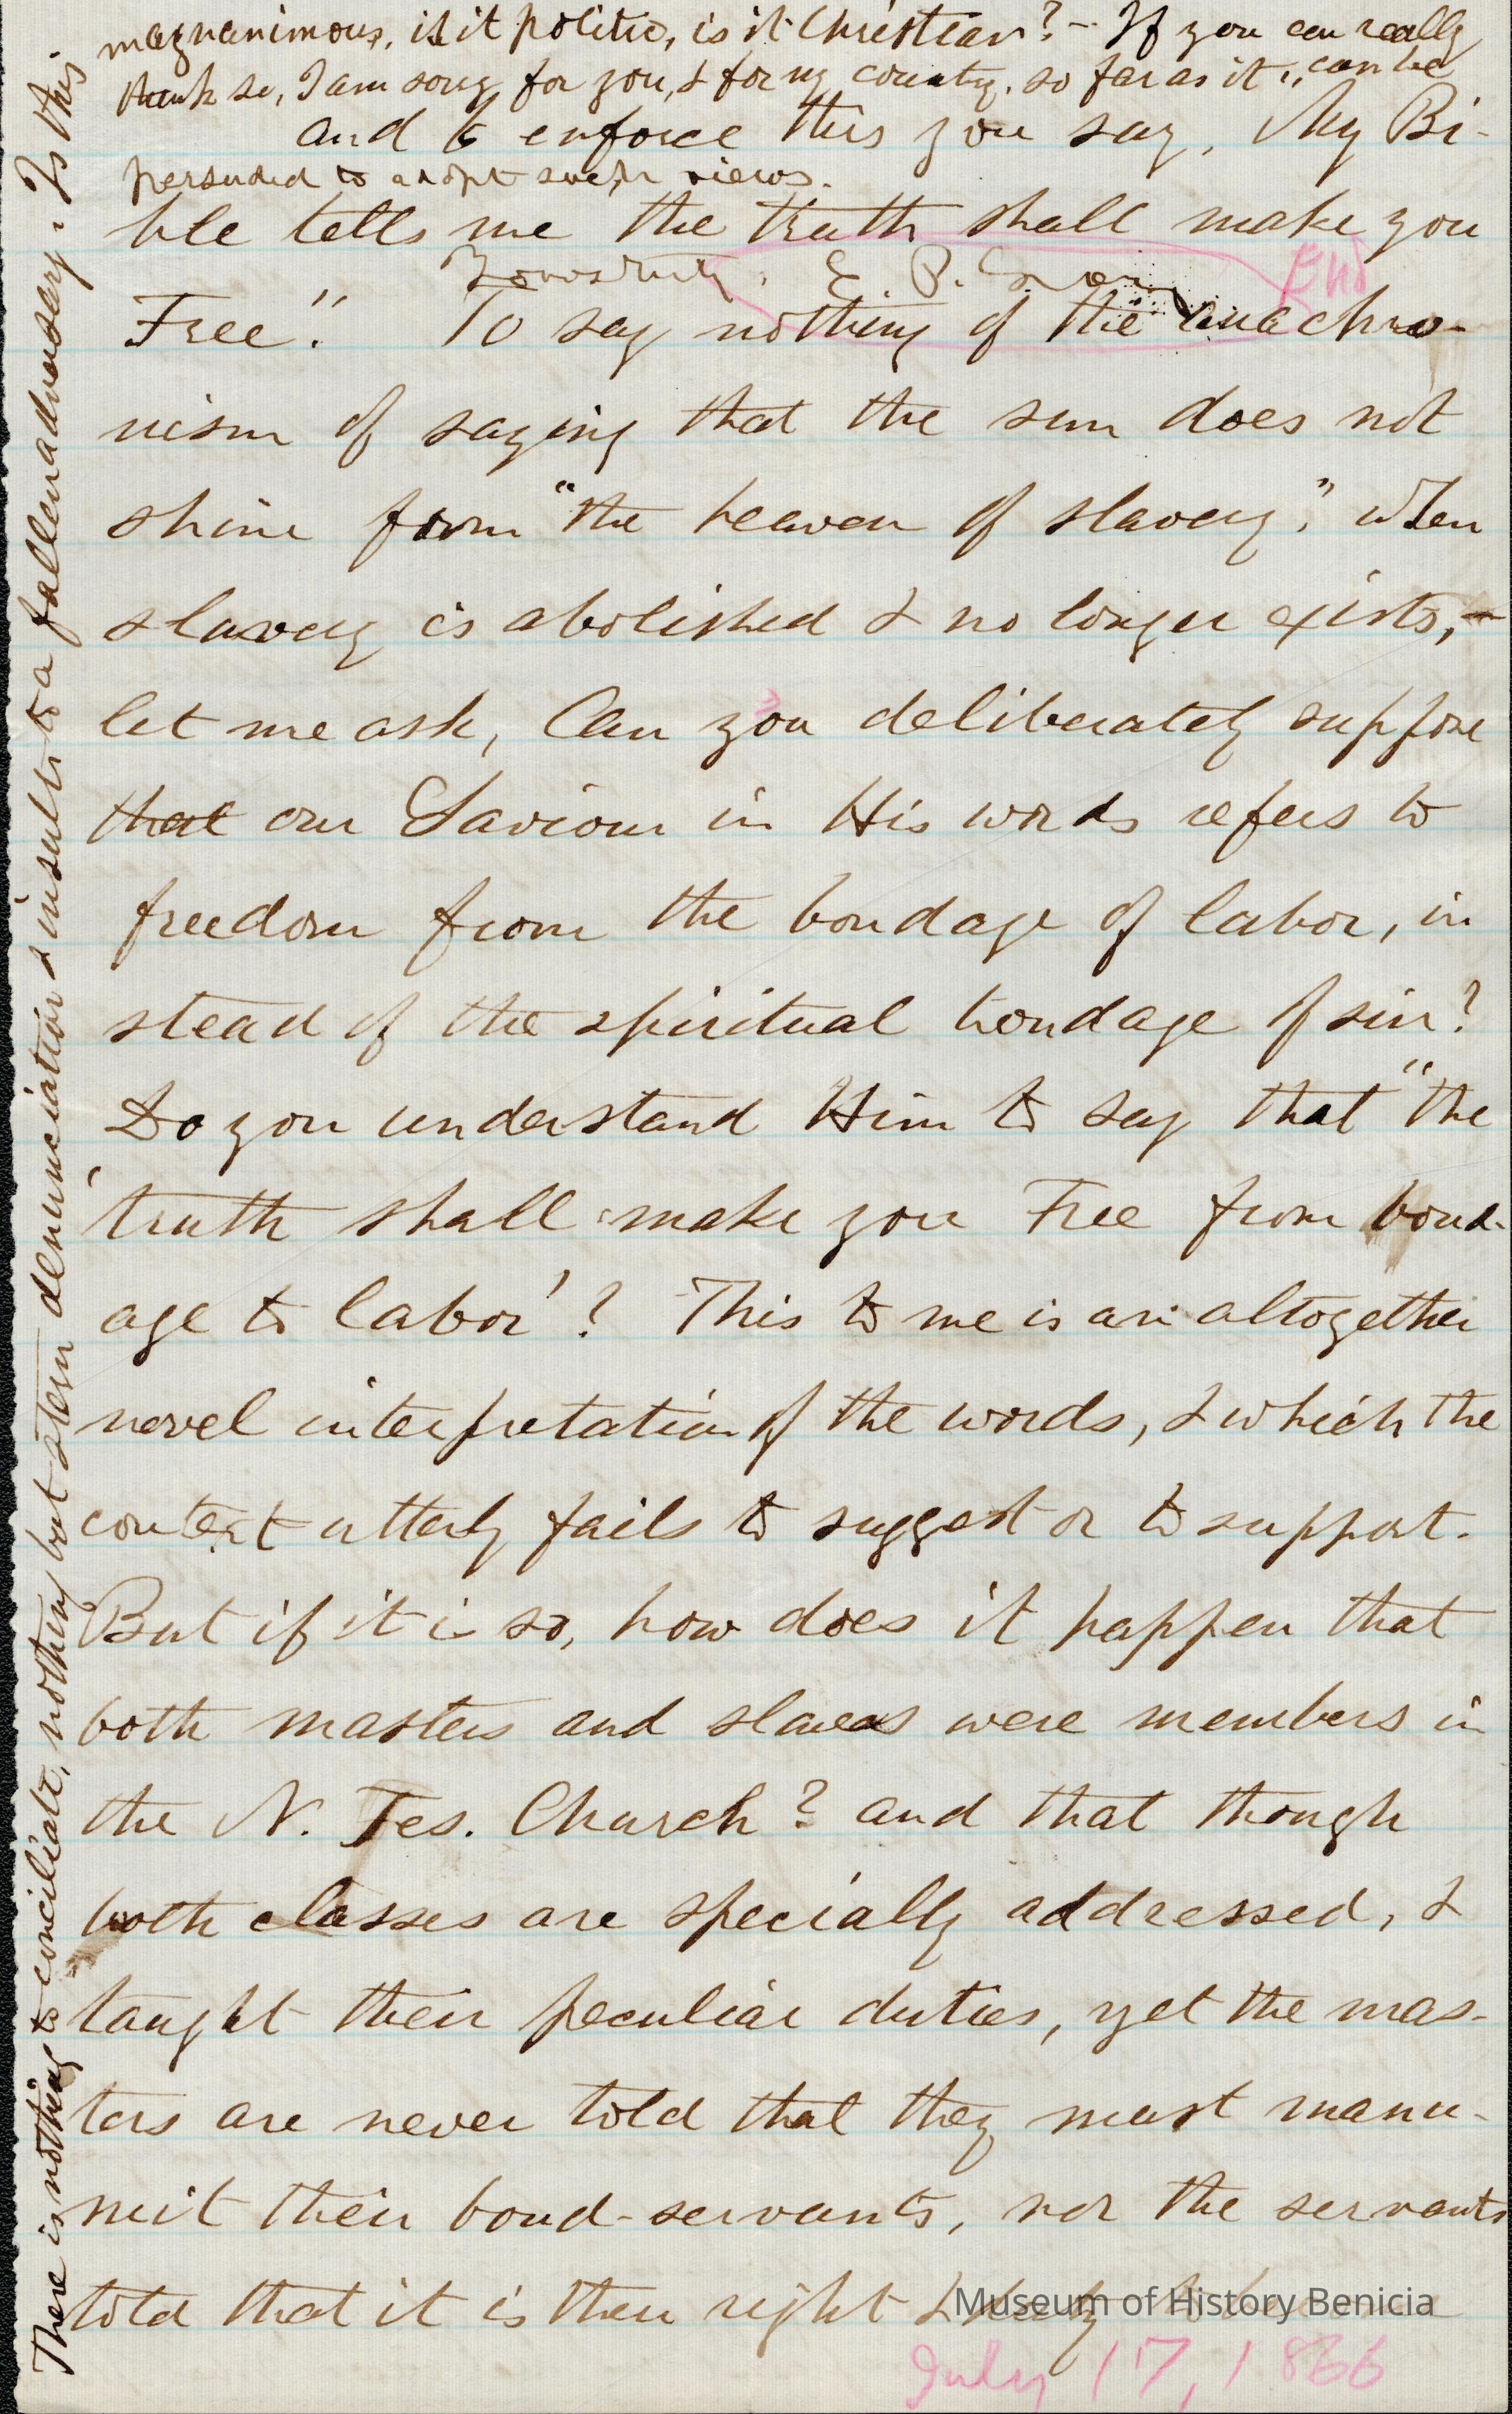 magnanimous, is it politic, is it Christian? – If you can really
think so, I am sorry for you, & for my country, so far as it can be
and to enforce this you say, My Bi-
persuded to adopt such views.
ble tells me the truth shall make you
Yours truly, E. B.
End
Free." To say nothing of the anachro-
nism of saying that the sun does not
shine from "the heaven of slavery", when
slavery is abolished & no longer exists, –
let me ask, Can you deliberately suppose
that our Saviour in His words refers to
freedom from the bondage of labor, in
stead of the spiritual bondage of sin?
Do you understand Him to say that "the
truth shall make you Free from bond-
age to labor'? This to me is an altogether
novel interpretation of the words, & which the
context utterly fails to suggest or to support.
But if it is so, how does it happen that
both masters and slaves were members in
the N. Tes. Church? and that though
both classes are specially addressed, &
taught their peculiar duties, yet the mas-
ters are never told that they must manu-
mit their bond-servants, nor the servants
told that it is their right &
Museum of History Benicia
July 17, 1866
There is nothing to conciliate, nothing but stern denunciation & insult to a fallen adversary. Is this